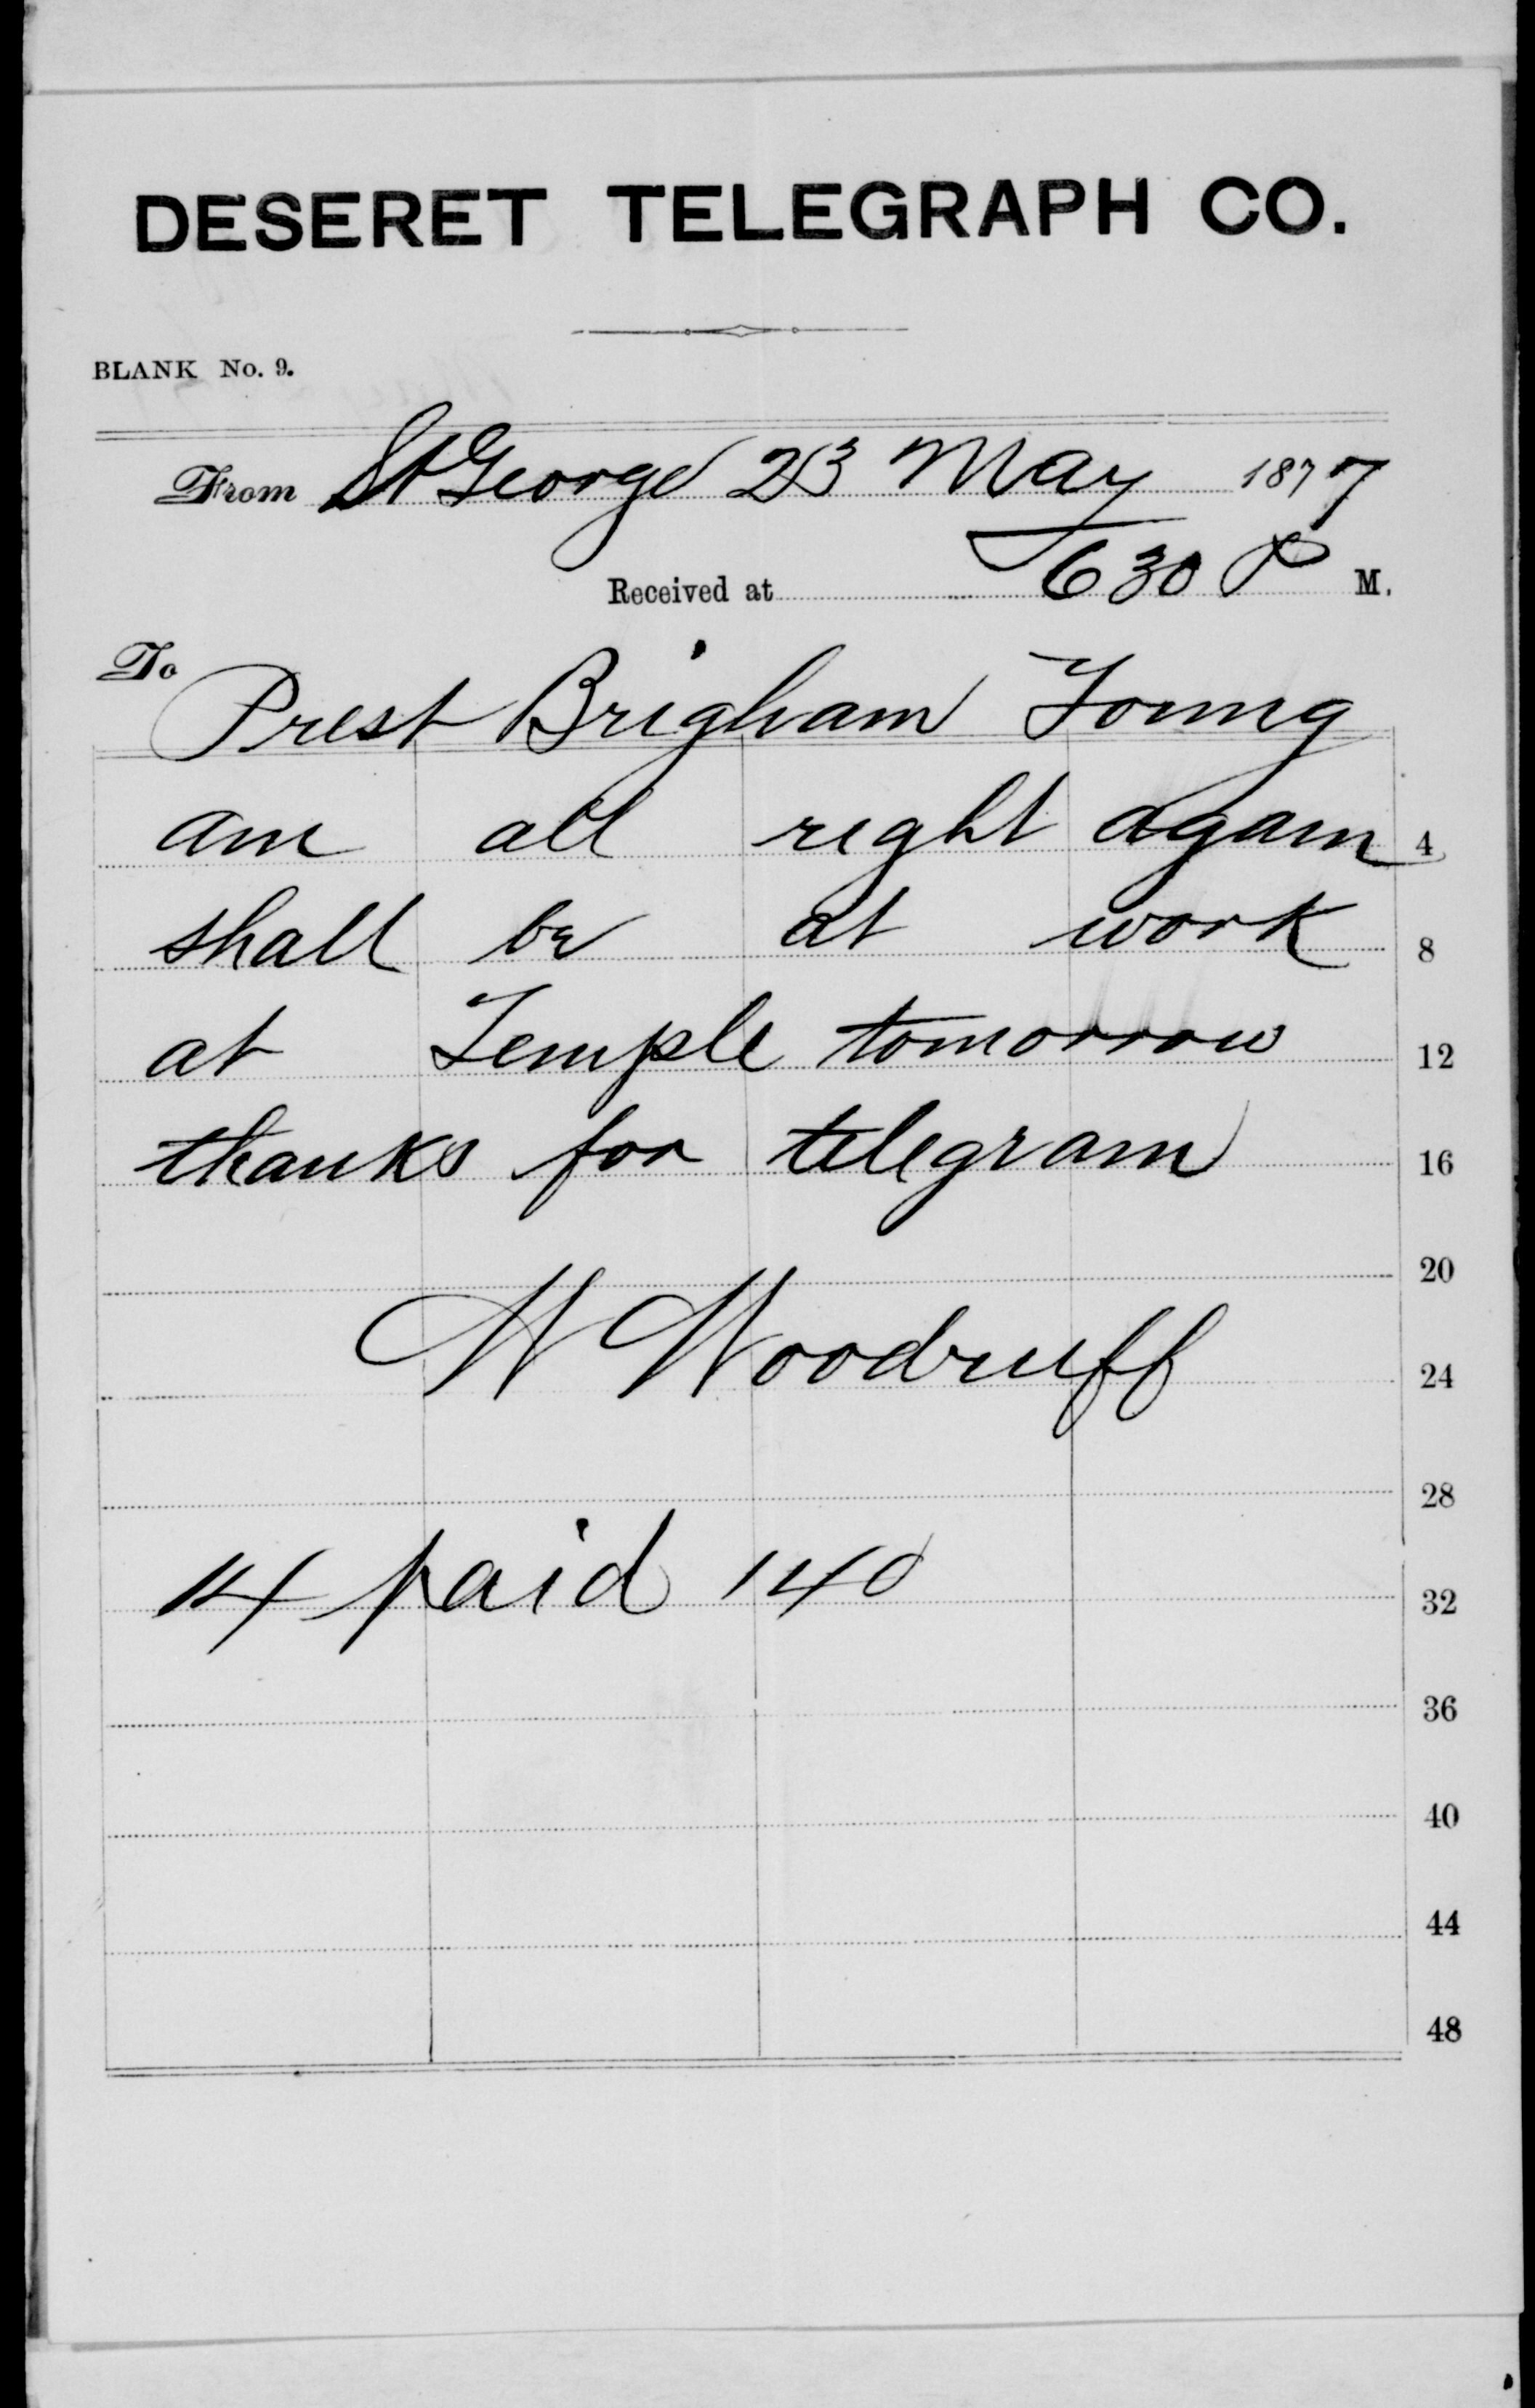 DESERET TELEGRAPH CO.
BLANK No. 9.
From St George 23 May 1877
Received at 630 P M.
To
Prest Brigham Young
am all right again 4
shall be at work 8
at Temple tomorrow 12
thanks for telegram 16
20
W Woodruff
24
28
14 paid 140
32
36
40
44
48